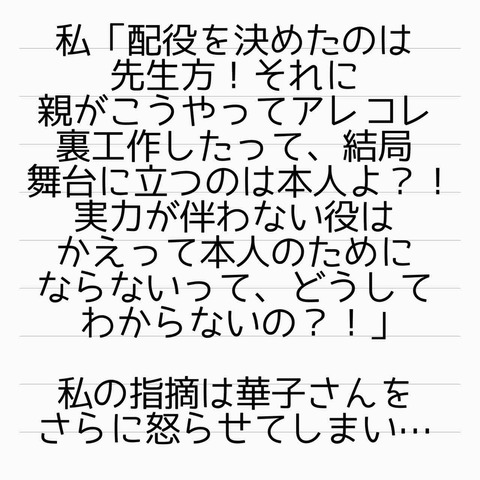 私「配役を決めたのは
先生方！それに
親がこうやってアレコレ
裏工作したって、結局
舞台に立つのは本人よ？！
実力が伴わない役は
かえって本人のために
ならないって、どうして
わからないの？！」
私の指摘は華子さんを
さらに怒らせてしまい…